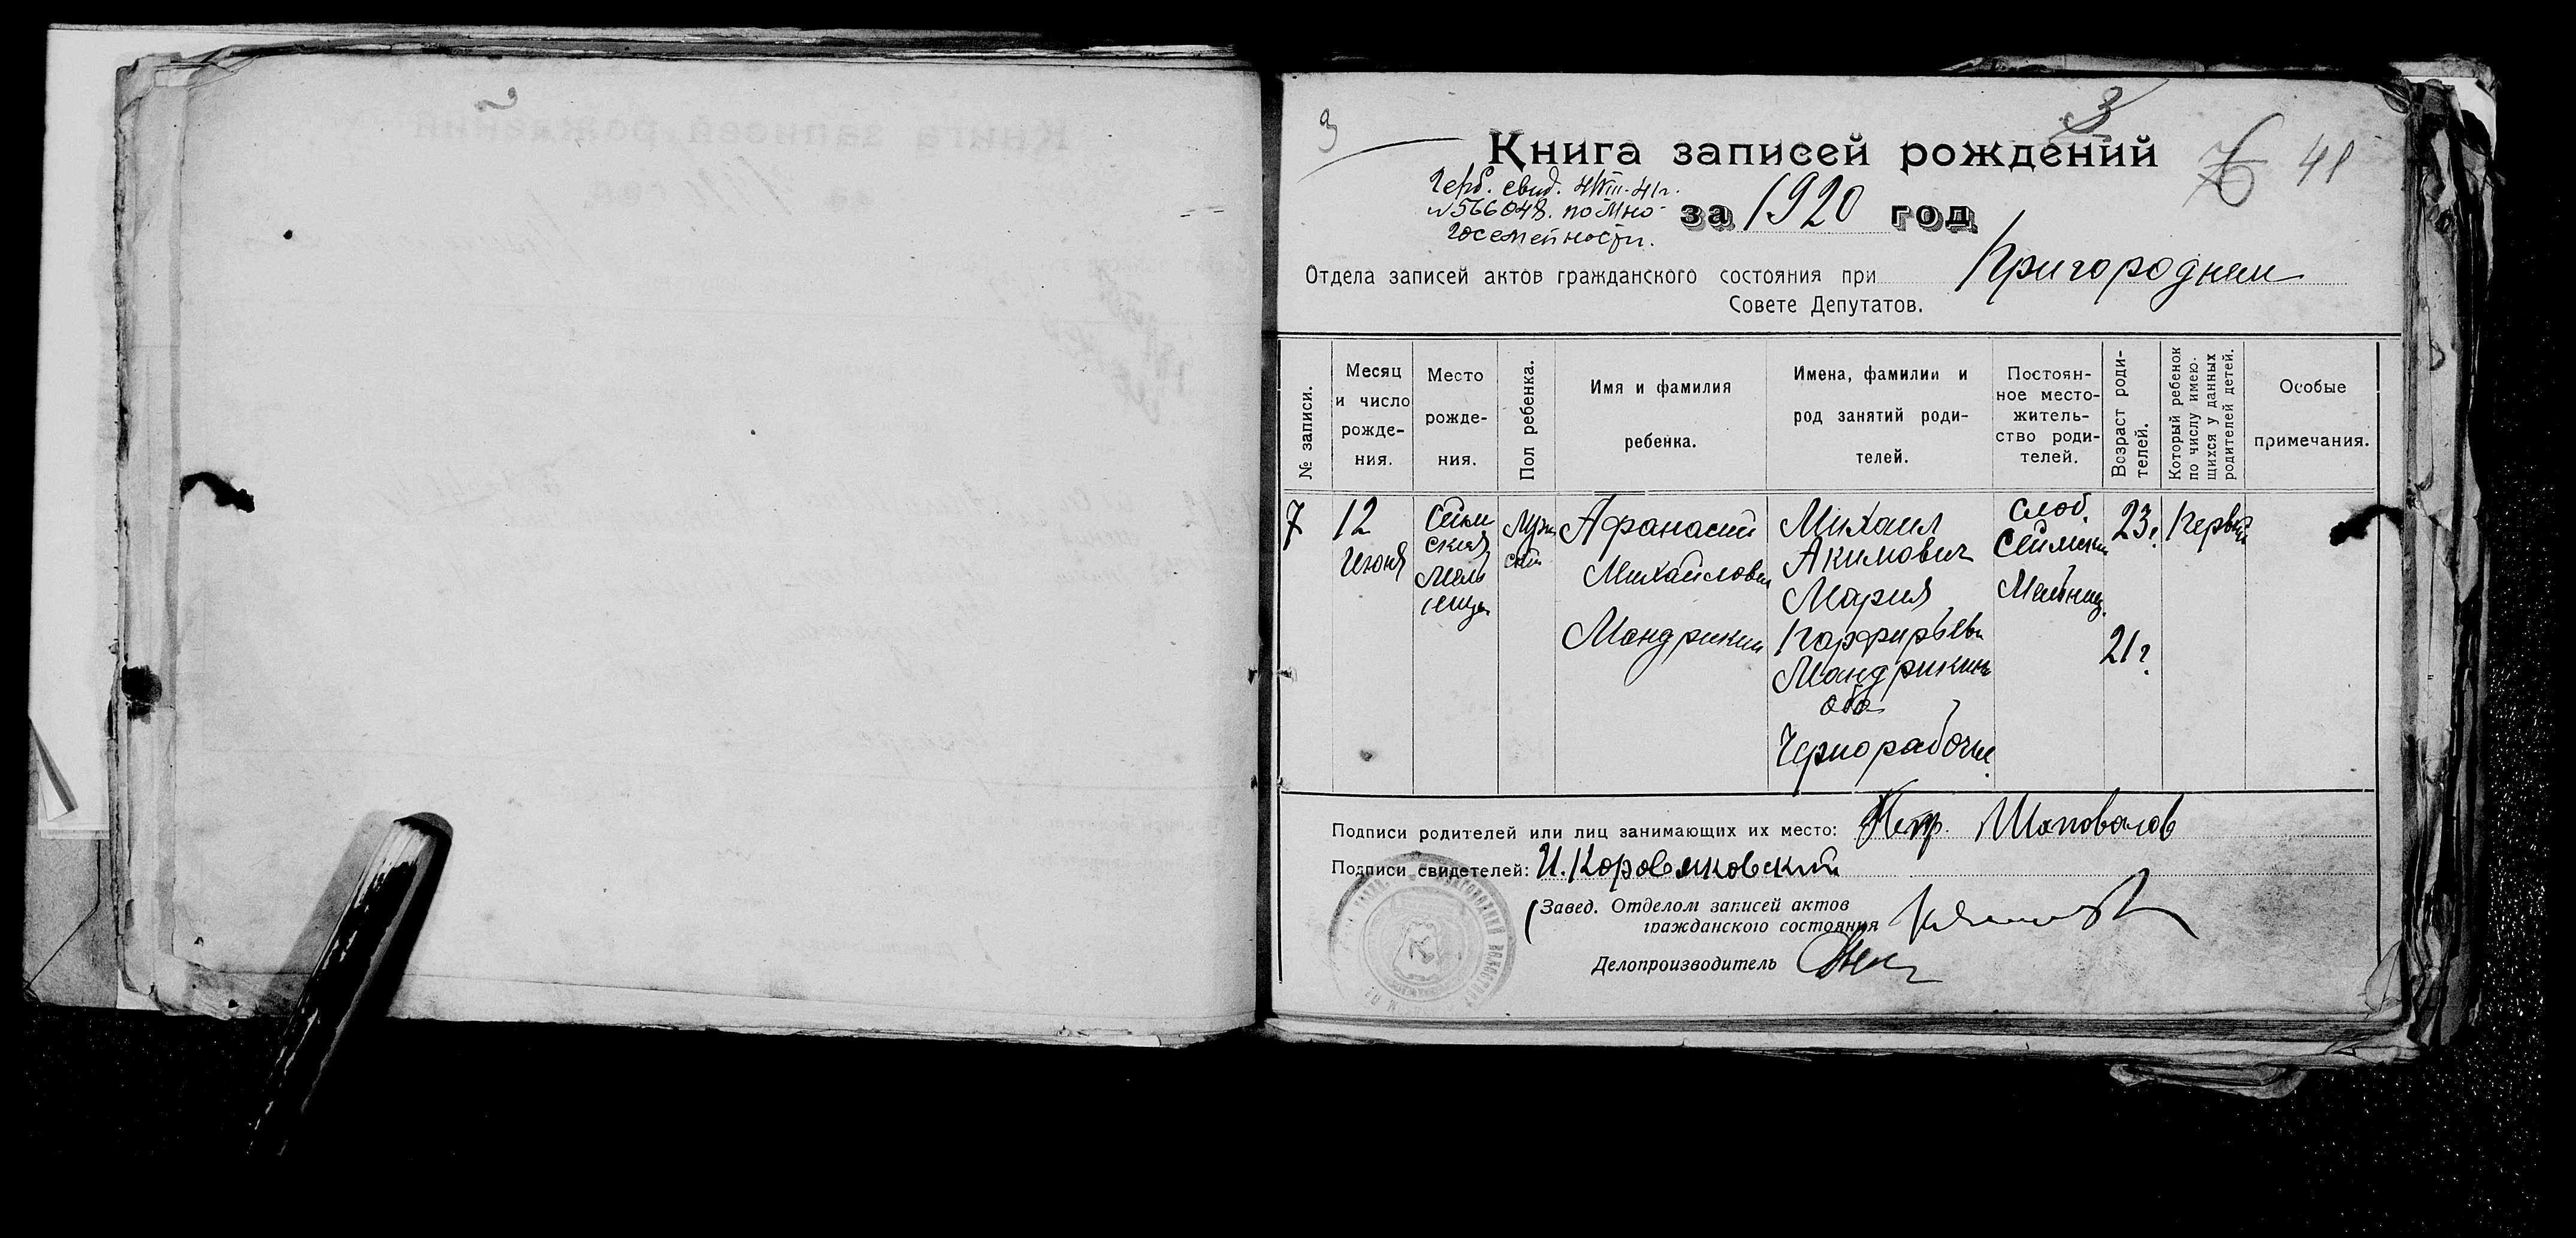 3
3
Книга записей рождений
41
Герб. свид. 4/VIII-41г.
№566048. по мно-
госемейности.
за 1920 год
Отдела записей актов гражданского состояния при Пригороднем
Совете Депутатов.
№ записи.
Месяц
и число
рожде-
ния.
Место
рожде-
ния.
Пол ребенка.
Имя и фамилия
ребенка.
Имена, фамилии и
род занятий роди-
телей.
Постоян-
ное место-
житель-
ство роди-
телей.
Возраст роди-
телей.
Который ребенок
по числу имею-
щихся у данных
родителей детей.
Особые
примечания.
7
12
Июня
Сейм
ская
Мель
ница
Муж
ской
Афанасий
Михайлович
Мандрикин
Михаил
Акимович
Мария
Парфирьевн
Мандрикины
оба
Чернорабочие
Слоб.
Сеймских
Мельниц.
23г.
21г.
Первый
Подписи родителей или лиц занимающих их место: Петр. Шаповалов
Подписи свидетелей: И. Коровяковский
Завед. Отделом записей актов
гражданского состояния
Делопроизводитель